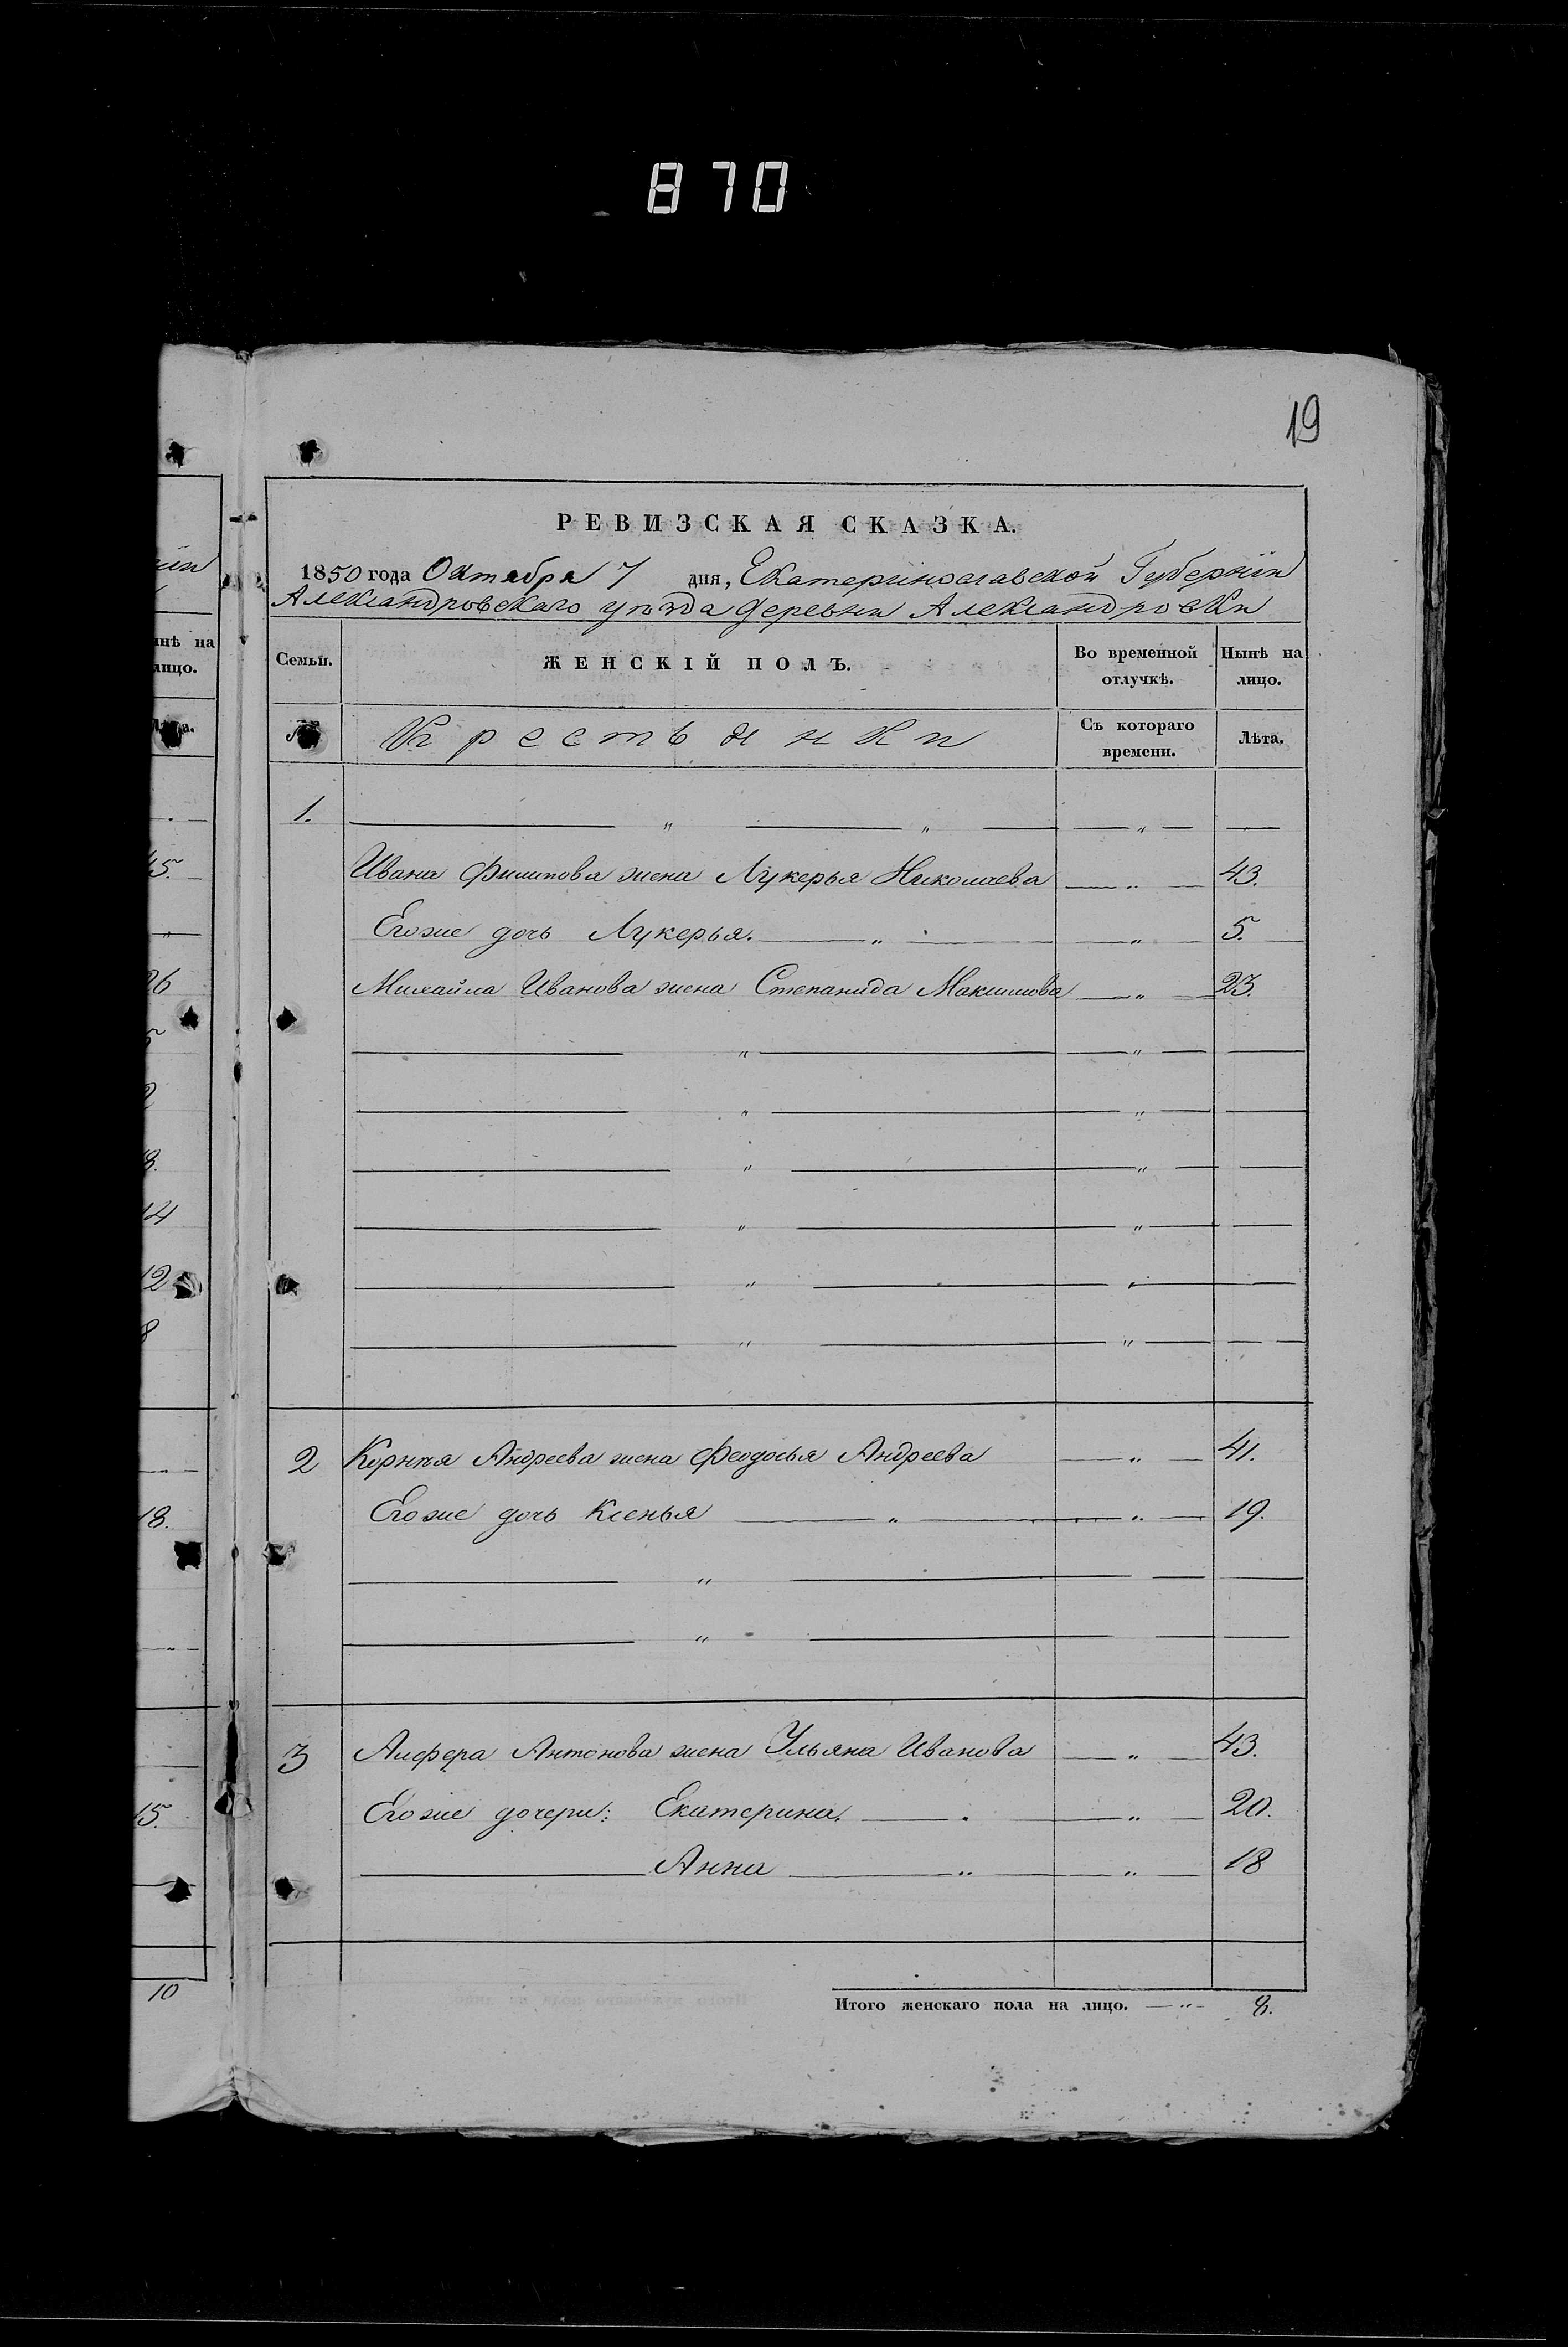 870
19
РЕВИЗСКАЯ СКАЗКА.
1850 года Октября 7 дня, Екатеринославской Губернiи
Александровскаго уѣзда деревни Александровки
Семьи. ЖЕНСКIЙ ПОЛЪ. Во временной отлучкѣ. Нынѣ на лицо.
№ Крестьянки Съ котораго времени. Лѣта.
1. — " — " — " —
Ивана Филипова жена Лукерья Николаева — " — 43.
Егоже дочь Лукерья. — " — " — 5.
Михайла Иванова жена Степанида Максимова — " — 23.
— " — " —
— " — " —
— " — " —
— " — " —
— " — " —
— " — " —
2 Корнѣя Андреева жена Феодосья Андреева — " — 41.
Егоже дочь Ксенья — " — " — 19.
— " —
— " —
3 Алфера Антонова жена Ульяна Иванова — " — 43.
Егоже дочери: Екатерина. — " — 20.
— Анна — " — " — 18
Итого женскаго пола на лицо. — " — 8.
нѣ на
лицо.
45.
26
14
12
8
18.
15.
10